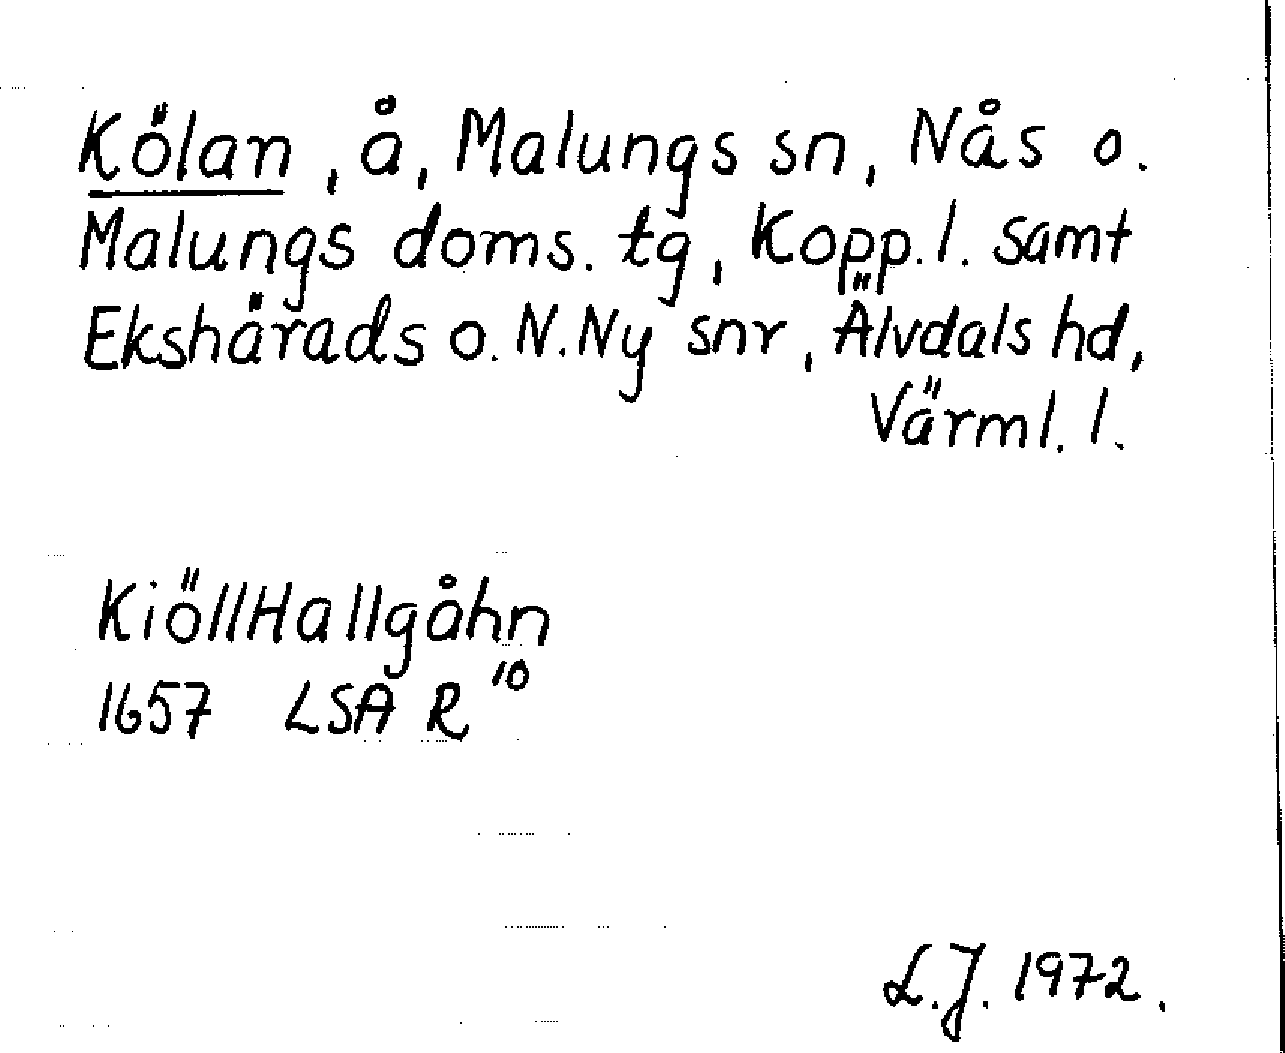 Kölan, å, Malungs sn, Nås o.
Malungs doms. tg, Kopp. l. samt
Ekshärads o. N. Ny snr, Älvdals hd,
Värml. l.
KiöllHallgåhn
1657 LSA R 10
L.J. 1972.